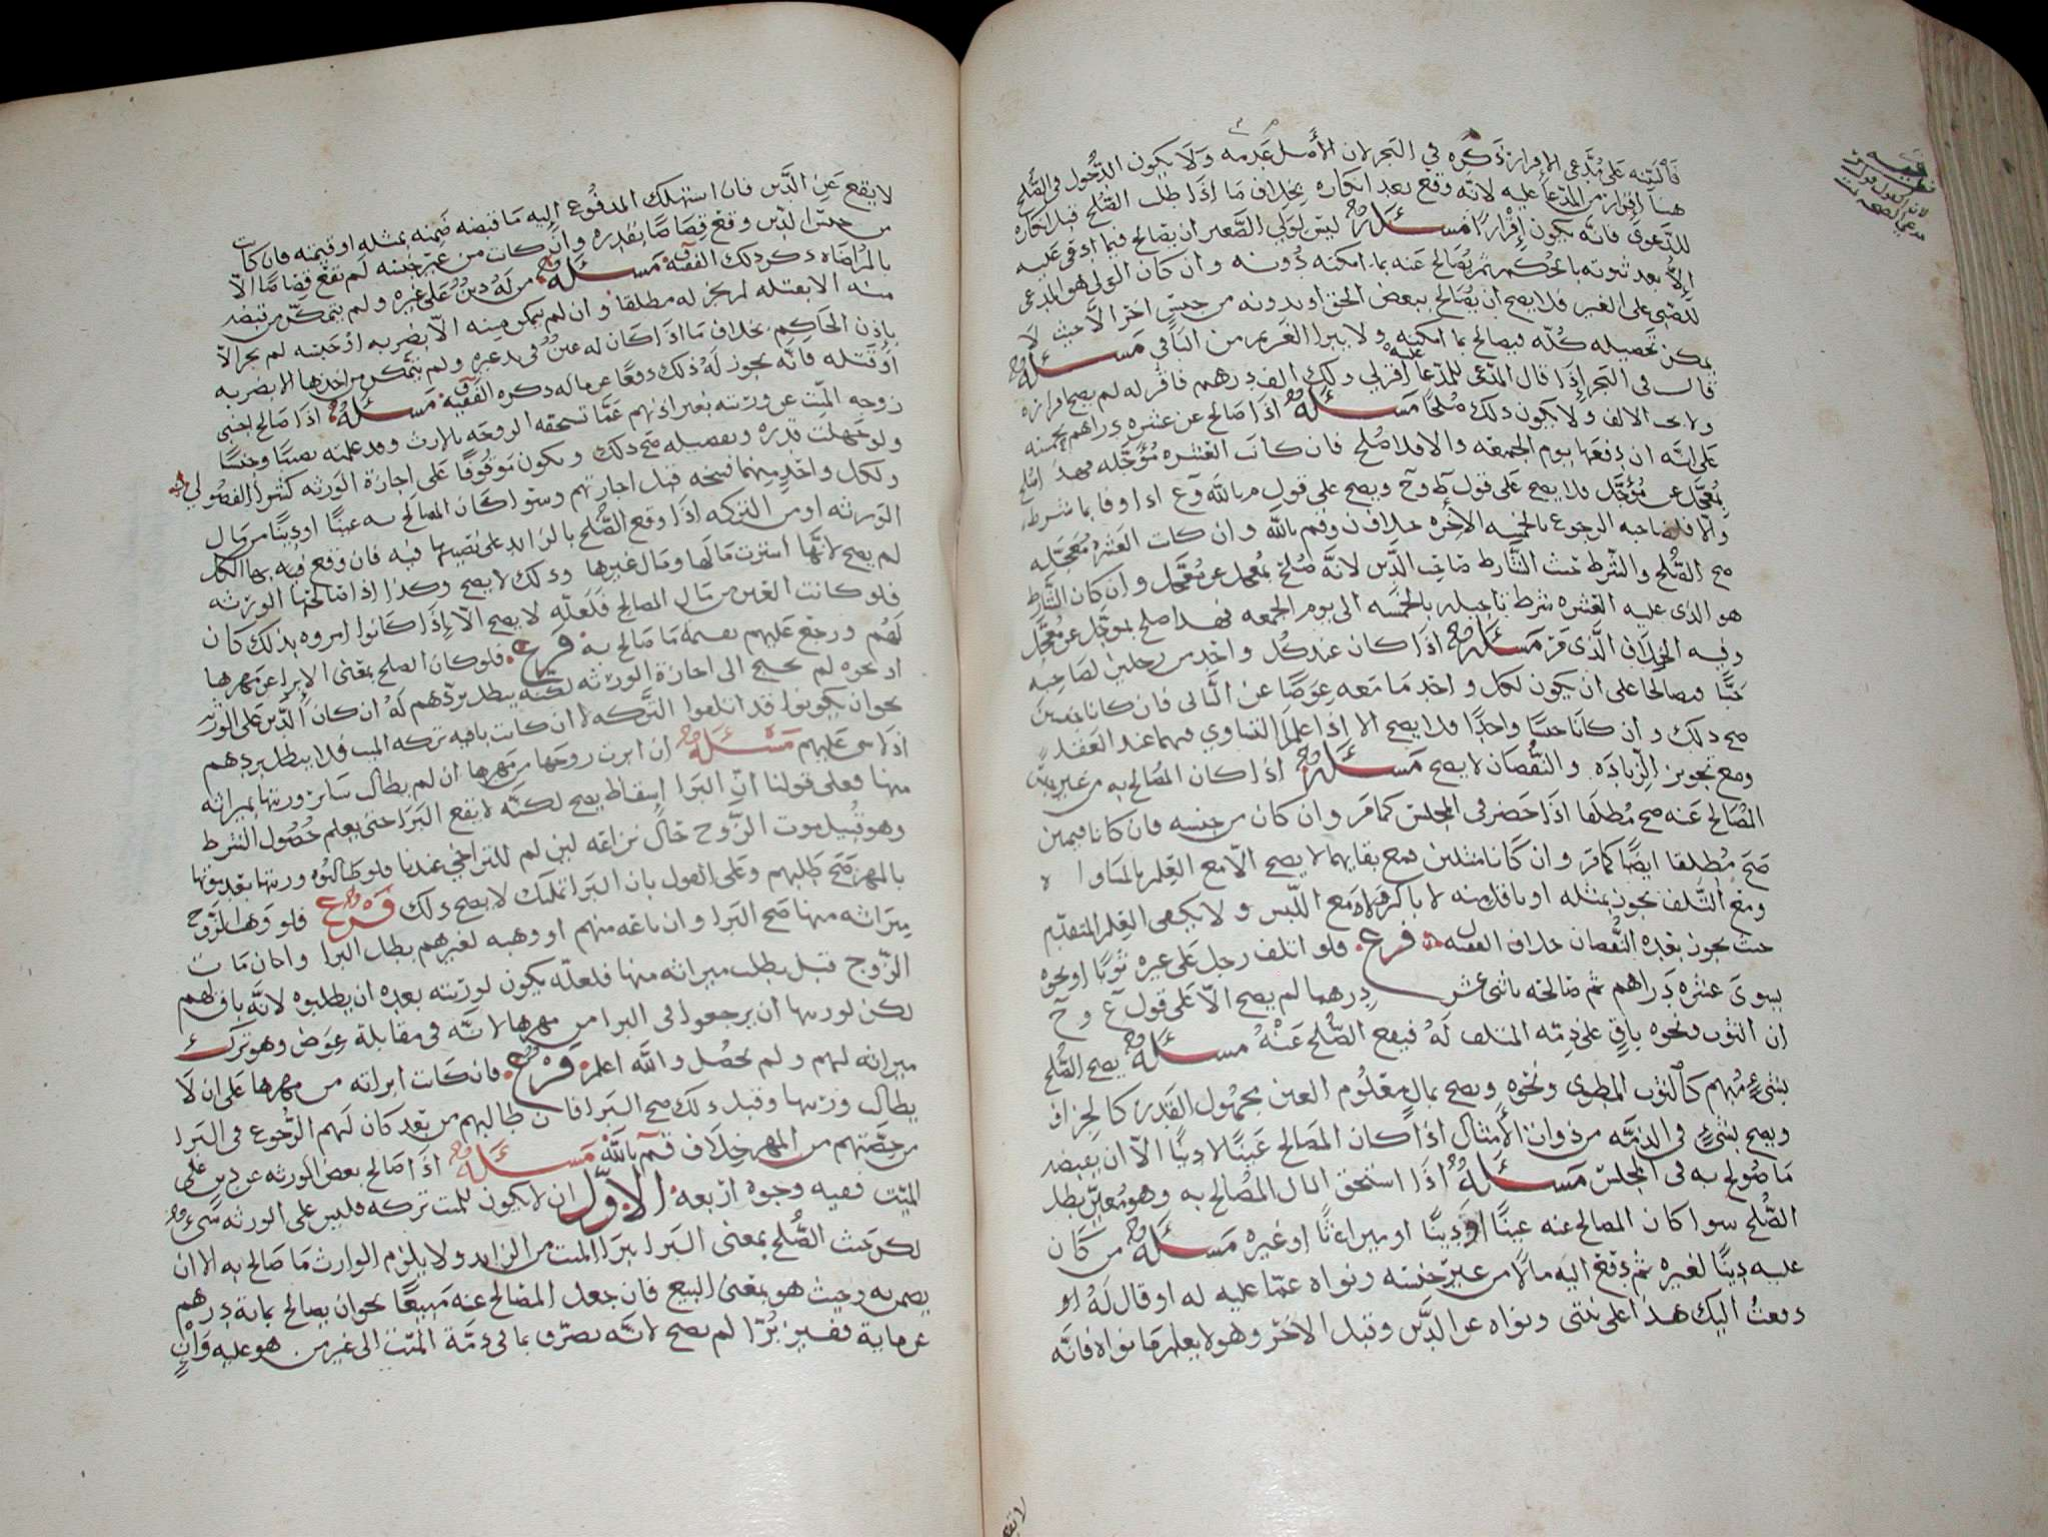 فالبينه على مدعي الاقرار ذكره في البحر لان الأصل عدمه ولا يكون الدخول في الصلح
هنا إقرار من المدعا عليه لانه وقع بعد انكاره بخلاف ما اذا طلب الصلح قبل انكاره
للدعوى فانه يكون إقرارًا مسئلة ليس لولي الصغير ان يصالح فيما ادعي عليه
إلا بعد ثبوته بالحكم ثم يصالح عنه بما امكنه دونه وان كان الولي هو المدعي
للصبي على الغير فلا يصح ان يصالح ببعض الحق او بدونه من جنس اخر الا حيث لا
يمكن تحصيله كله فيصالح بما امكنه ولا يبرا الغريم من الباقي مسئلة
قال في البحر إذا قال المدعي للمدعا عليه اقر لي ولك الف درهم فاقر له لم يصح اقراره
ولا الالف ولا يكون ذلك صلحًا مسئلة اذا صالح عن عشره دراهم بخمسه
على انه ان دفعها يوم الجمعه والا فلا صلح فان كانت العشره مؤجله فهذا صلح
بمعجل عن مؤجل فلا يصح على قول ط وح ويصح على قول م بالله وع اذا وفا بما شرط
والا فلصاحبه الرجوع بالخمسه الأخره خلاف ن وقم بالله وان كانت العشره معجله
صح الصلح والشرط حيث الشارط صاحب الدين لانه صلح بمعجل عن معجل وان كان الشارط
هو الذي عليه العشره شرط تاجيله بالخمسه الى يوم الجمعه فهذا صلح بموجل عن معجل
وفيه الخلاف الذي مر مسئلة اذا كان عند كل واحد من رجلين لصاحبه
حبًا فصالحا على ان يكون لكل واحد ما معه عوضًا عن الثاني فان كانا جنسين
صح ذلك وان كانا جنسًا واحدًا فلا يصح الا اذا علم التساوي فيهما عند العقد
ومع تجويز الزياده والنقصان لا يصح مسئلة اذا كان المصالح به من غير جنس
المصالح عنه صح مطلقا اذا حضر في المجلس كما مر وان كان من جنسه فان كانا قيميين
صح مطلقا ايضًا كما مر وان كانا مثليين فمع بقايهما لا يصح الا مع العلم بالتساوي
ومع التلف يجوز بمثله او باقل منه لا باكثر ولا مع اللبس ولا يكفي العلم المتقدم
حيث يجوز بعده النقصان خلاف الفقيه فرع فلو اتلف رجل على غيره ثوبًا او نحوه
يسوى عشره دراهم ثم صالحه باثني عشر درهما لم يصح الا على قول ع وح
ان الثوب ونحوه باقٍ على ذمه المتلف له فيقع الصلح عنه مسئلة يصح الصلح
بشيءٍ مبهم كالثوب المطوي ونحوه ويصح بمال معلوم العين مجهول القدر كالجزاف
ويصح بشيءٍ في الذمه من ذوات الأمثال اذا كان المصالح عينًا لا دينًا الا ان يقبض
ما صولح به في المجلس مسئلة اذا استحق المال المصالح به وهو معين بطل
الصلح سوا كان المصالح عنه عينًا او دينًا او ميراثًا او غيره مسئلة من كان
عليه دينًا لغيره ثم دفع اليه مالا من غير جنسه ونواه عما عليه له او قال له او
دفعت اليك هذا على نيتي ونواه عن الدين وقبل الاخر وهو لا يعلم ما نواه فانه
لا يقع عن الدين فان استهلك المدفوع إليه ما قبضه ضمنه بمثله او قيمته فان كانت
من جنس الدين وقع قصاصًا بقدره وان كانت من غير جنسه لم يقع قصاصًا الا
بالمراضاه ذكر ذلك الفقيه مسئلة من له دين على غيره ولم يتمكن من قبضه
منه الا بقتله لم يجز له مطلقا وان لم يمكن منه الا بضربه او حبسه لم يجز الا
بإذن الحاكم بخلاف ما اذا كان له عين في يد غيره ولم يتمكن من اخذها الا بضربه
او قتله فانه يجوز له ذلك دفعًا عن ماله ذكره الفقيه مسئلة اذا صالح اجنبي
زوجه الميت عن ورثته بغير اذنهم عما تستحقه الزوجه بالإرث وقد علمته نصيبًا وجنسًا
ولو جهلت قدره وتفصيله صح ذلك ويكون موقوفًا على اجازة الورثه كشرا الفضولي
ولكل واحد منهما فسخه قبل اجازتهم وسوا كان المصالح به عينًا او دينًا من مال
الورثه او من التركه اذا وقع الصلح بالزايد على نصيبها فيه فان وقع فيه بها الكل
لم يصح لانها اشترت مالها ومال غيرها وذلك لا يصح وكذا اذا صالحها الورثه
فلو كانت العين من مال المصالح فلعله لا يصح الا إذا كانوا امروه بذلك كان
لهم ورجع عليهم بقيمة ما صالح به فرع فلو كان الصلح بمعنى الابرا عن مهرها
او نحوه لم يحتج الى اجازة الورثه لكنه يبطل بردهم له ان كان الدين على الورثه
نحو ان يكونوا قد اتلفوا التركه لا ان كانت باقيه تركه الميت فلا يبطل بردهم
اذ لا شي عليهم مسئلة ان ابرت زوجها من مهرها ان لم يطالب سائر ورثتها بميراثه
منها فعلى قولنا ان البرا إسقاط يصح لكنه لا يقع البرا حتى يعلم حصول الشرط
وهو قبيل موت الزوج حال نزاعه لبني لم للتراخي عندنا فلو طالبوه ورثتها بعد موتها
بالمهر صح طلبهم وعلى القول بان البرا تمليك لا يصح ذلك فرع فلو وهب الزوج
ميراثه منها صح البرا وان باعه منهم او وهبه لغيرهم بطل البرا وان مات
الزوج قبل يطلب ميراثه منها فلعله يكون لورثته بعده ان يطلبوه لانه باق لهم
لكن لورثتها ان يرجعوا في البرا من مهرها لانه في مقابلة عوض وهو ترك
ميراثه لهم ولم يحصل والله اعلم فرع فان كانت ابراته من مهرها على ان لا
يطالب ورثتها وقبل ذلك صح البرا فان طالبهم من بعد كان لهم الرجوع في البرا
من حصتهم من المهر خلاف قم بالله مسئلة اذا صالح بعض الورثه عن دين على
الميت ففيه وجوه اربعه الاول ان لا يكون للميت تركه فليس على الورثه شيء
لكن حيث الصلح بمعنى البرا يبرا الميت من الزايد ولا يلزم الوارث ما صالح به الا ان
يضمن به وحيث هو بمعنى البيع فان جعل المصالح عنه مبيعًا نحو ان يصالح بماية درهم
عن ماية قفيز بُرًا لم يصح لانه تصرف بما في ذمة الميت الى غير من هو عليه وان